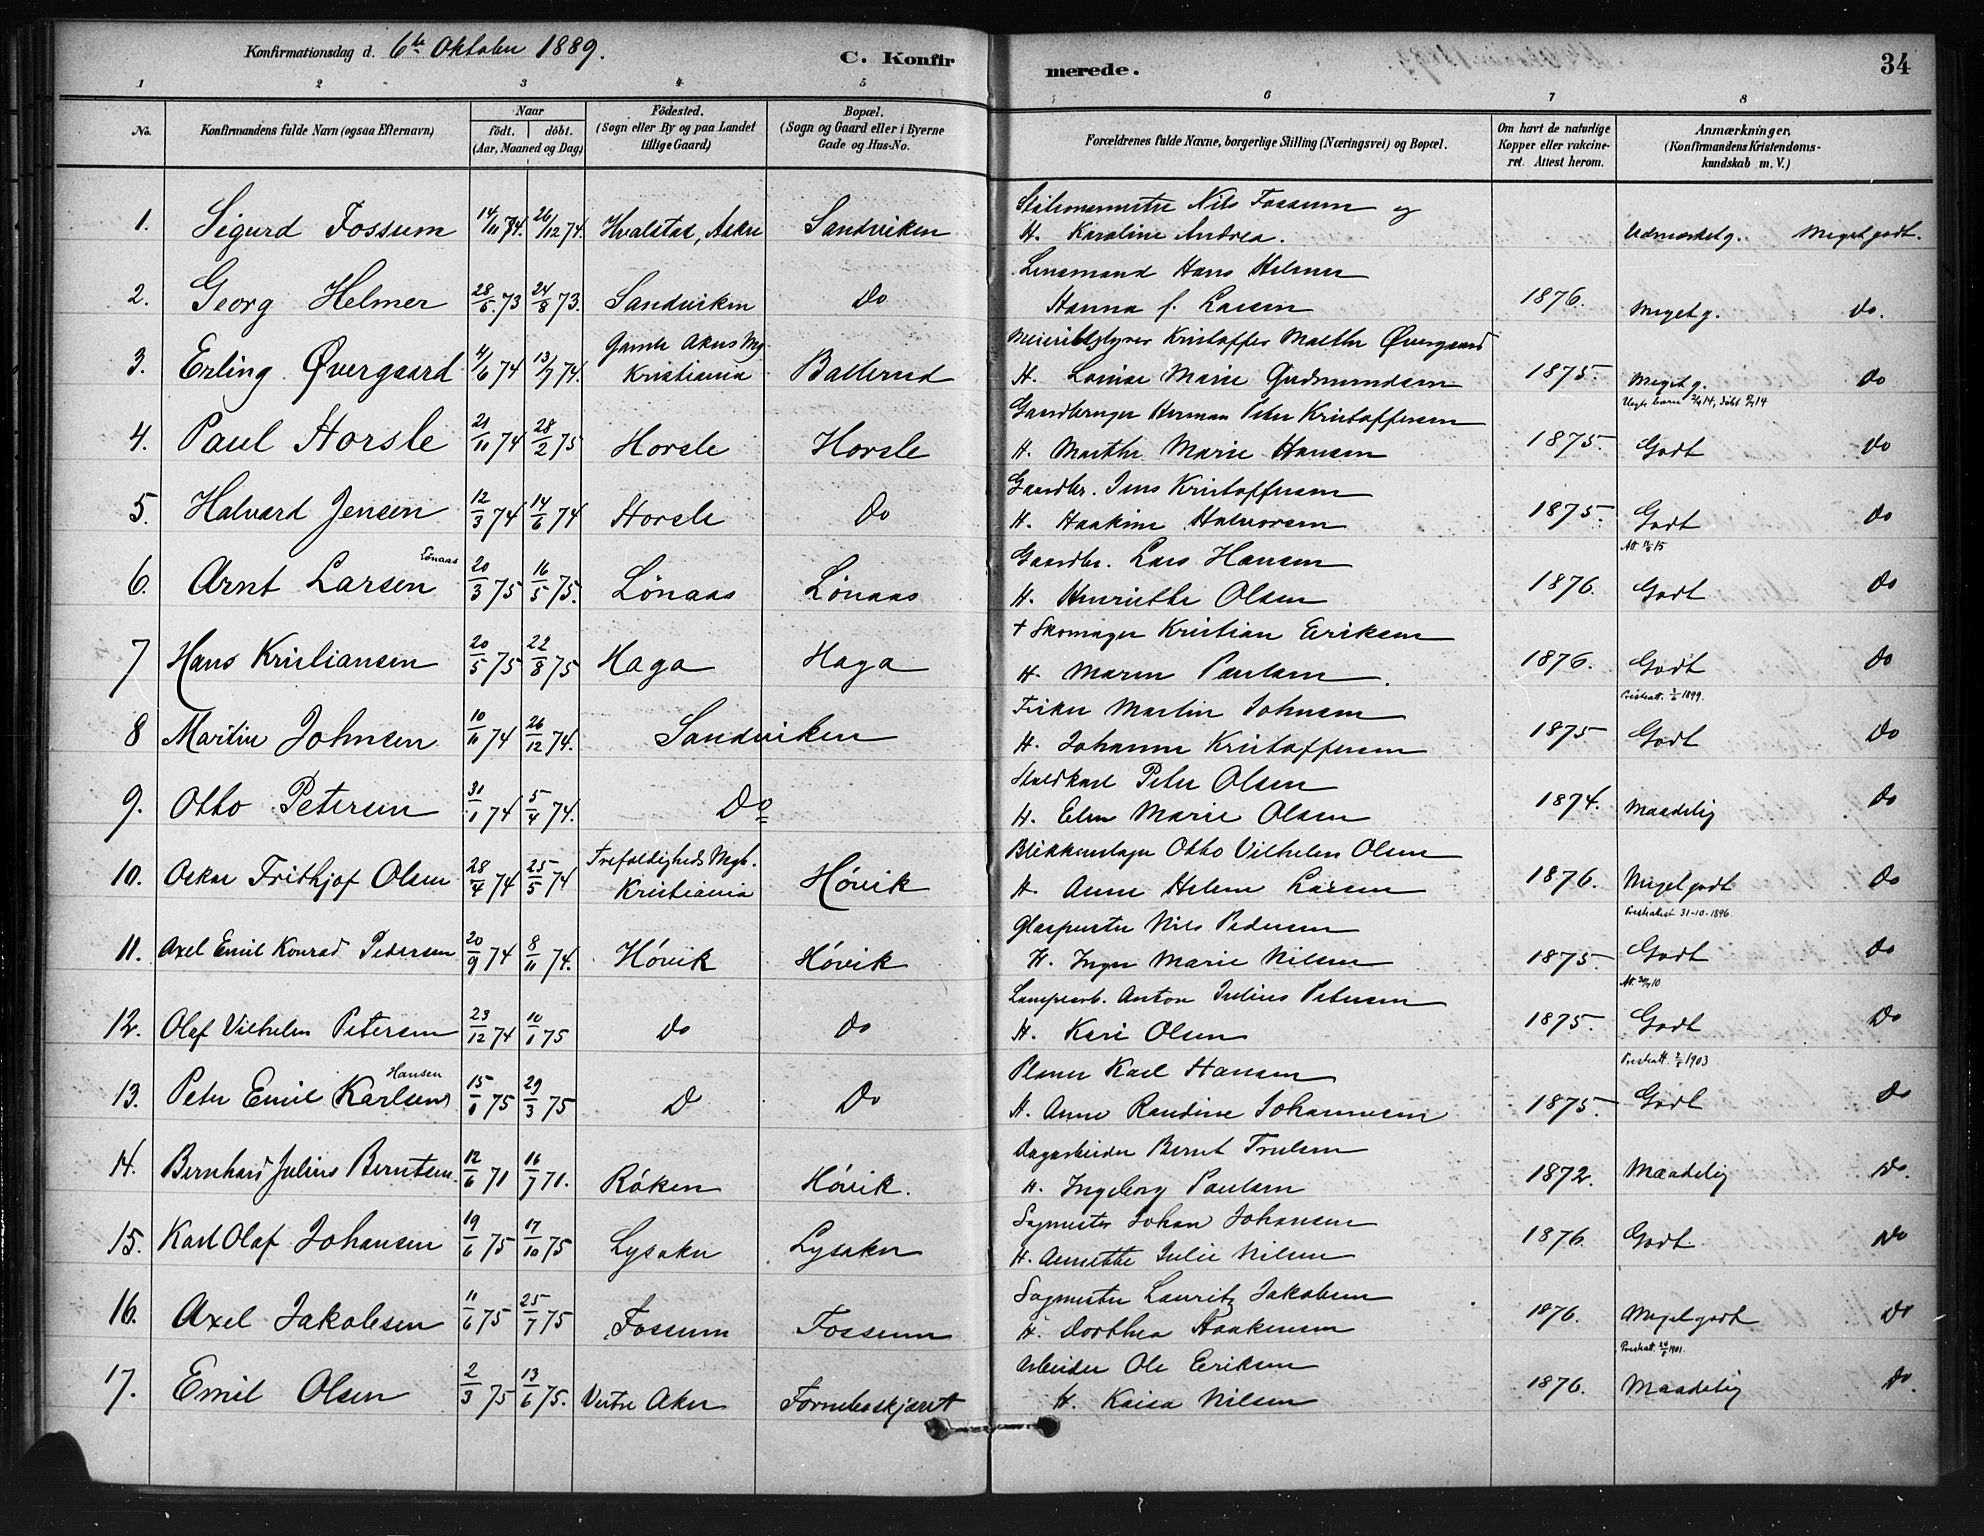 Konfirmationsdag d. 6te Oktober 1889.
C. Konfirmerede.
34
1 2 3 4 5 6 7 8
No.
Konfirmandens fulde Navn (ogsaa Efternavn)
Naar
födt. döbt.
(Aar, Maaned og Dag)
Födested.
(Sogn eller By og paa Landet
tillige Gaard)
Bopæl.
(Sogn og Gaard eller i Byerne
Gade og Hus-No.
Forældrenes fulde Navne, borgerlige Stilling (Næringsvei) og Bopæl.
Om havt de naturlige
Kopper eller vakcine-
ret. Attest herom.
Anmærkninger,
(Konfirmandens Kristendoms-
kundskab m. V.)
Stationsmester Nils Fossum og
1. Sigurd Fossum 14/11 74. 26/12 74. Hvalstad, Asker Sandviken H. Karoline Andrea. Udmærket g. Meget godt.
Lensmand Hans Helmer
2. Georg Helmer 28/5. 73 24/8 73. Sandviken Do Hanna f. Larsen 1876. Meget g. do.
Gamle Akers Mg. Meieribestyrer Kristoffer Malthe Øvergaard
3. Erling Øvergaard 4/6 74 13/7 74. Kristiania Ballerud H. Louise Marie Gudmundsen 1875. Meget g. do
Gaardbruger Herman Peter Kristoffersen
4. Paul Horsle 21/11 74 28/2 75 Horsle Horsle H. Marthe Marie Hansen 1875. Godt do
Gaardbr. Jens Kristoffersen
5. Halvard Jensen 12/3 74 14/6 74 Horsle Do H. Haakine Halvorsen 1875. Godt do
Lönaas Gaardbr. Lars Hansen
6. Arnt Larsen 20/3 75 16/5 75. Lönaas Lönaas H. Henriette Olsen 1876. Godt do
+ Skomager Kristian Eriksen
7 Hans Kristiansen 20/5 75 22/8 75 Haga Haga H. Maren Paulsen. 1876. Godt do
Fisker Martin Johnsen
8 Martin Johnsen 10/11 74 26/12 74. Sandviken H. Johanne Kristoffersen 1875 Godt Do
Staldkarl Peter Olsen
9. Otto Petersen 31/1 74 5/4 74. Do H. Elen Marie Olsen 1874. Maadelig do
Trefoldigheds Mgh. Blikkenslager Otto Vilhelm Olsen
10. Oskar Frithjof Olsen 28/4 74 25/5 74 Kristiania Hövik H. Anne Helene Larsen 1876. Meget godt do
Presteattest 31-10-1896.
Glaspuster Nils Pedersen
11. Axel Emil Konrad Pedersen 20/9 74 8/11 74. Hövik Hövik H. Inger Marie Nilsen 1875. Godt do
Lampearb. Anton Julius Petersen
12. Olaf Vilhelm Petersen 23/12 74 10/1 75 Do Do H. Kari Olsen 1875. Godt Do
Hansen Planer Karl Hansen
13. Peter Emil Karlsen 15/1 75 29/3 75 D Do H. Anne Randine Johannesen 1875. Godt Do
Dagarbeider Bernt Trulsen
14. Bernhard Julius Berntsen. 12/6 71 16/7 71. Röken Hövik. H. Ingeborg Paulsen 1872. Maadelig Do.
Sagmester Johan Johansen
15. Karl Olaf Johansen 19/6 75 17/10 75 Lysaker Lysaker H. Annette Julie Nilsen 1876. Godt. Do
Sagmester Lauritz Jakobsen
16. Axel Jakobsen 11/6 75 25/7 75 Fossum Fossum H. Dorthea Haakensen 1876. Meget godt Do
Arbeider Ole Eriksen
17. Emil Olsen 2/3 75 13/6 75. Vestre Aker Forneboskjæret H. Kaisa Nilsen 1876. Maadelig Do.